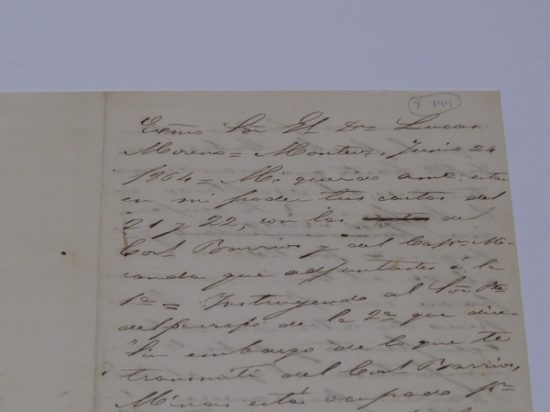 Exmo Sor Gl Dn Lucas
Moreno = Montevo, Junio 24
1864 = Mi querido amo: están
en mi poder tus cartas del
21 y 22, con las de
Corl Barrios y del Capn Mi-
randa que adjuntastes á la
1a = Instruyendo al Sor
del parrafo de la 2a que dice
"Sin embargo de lo que te
transmití del Corl Barrios,
Minas está ocupado pr